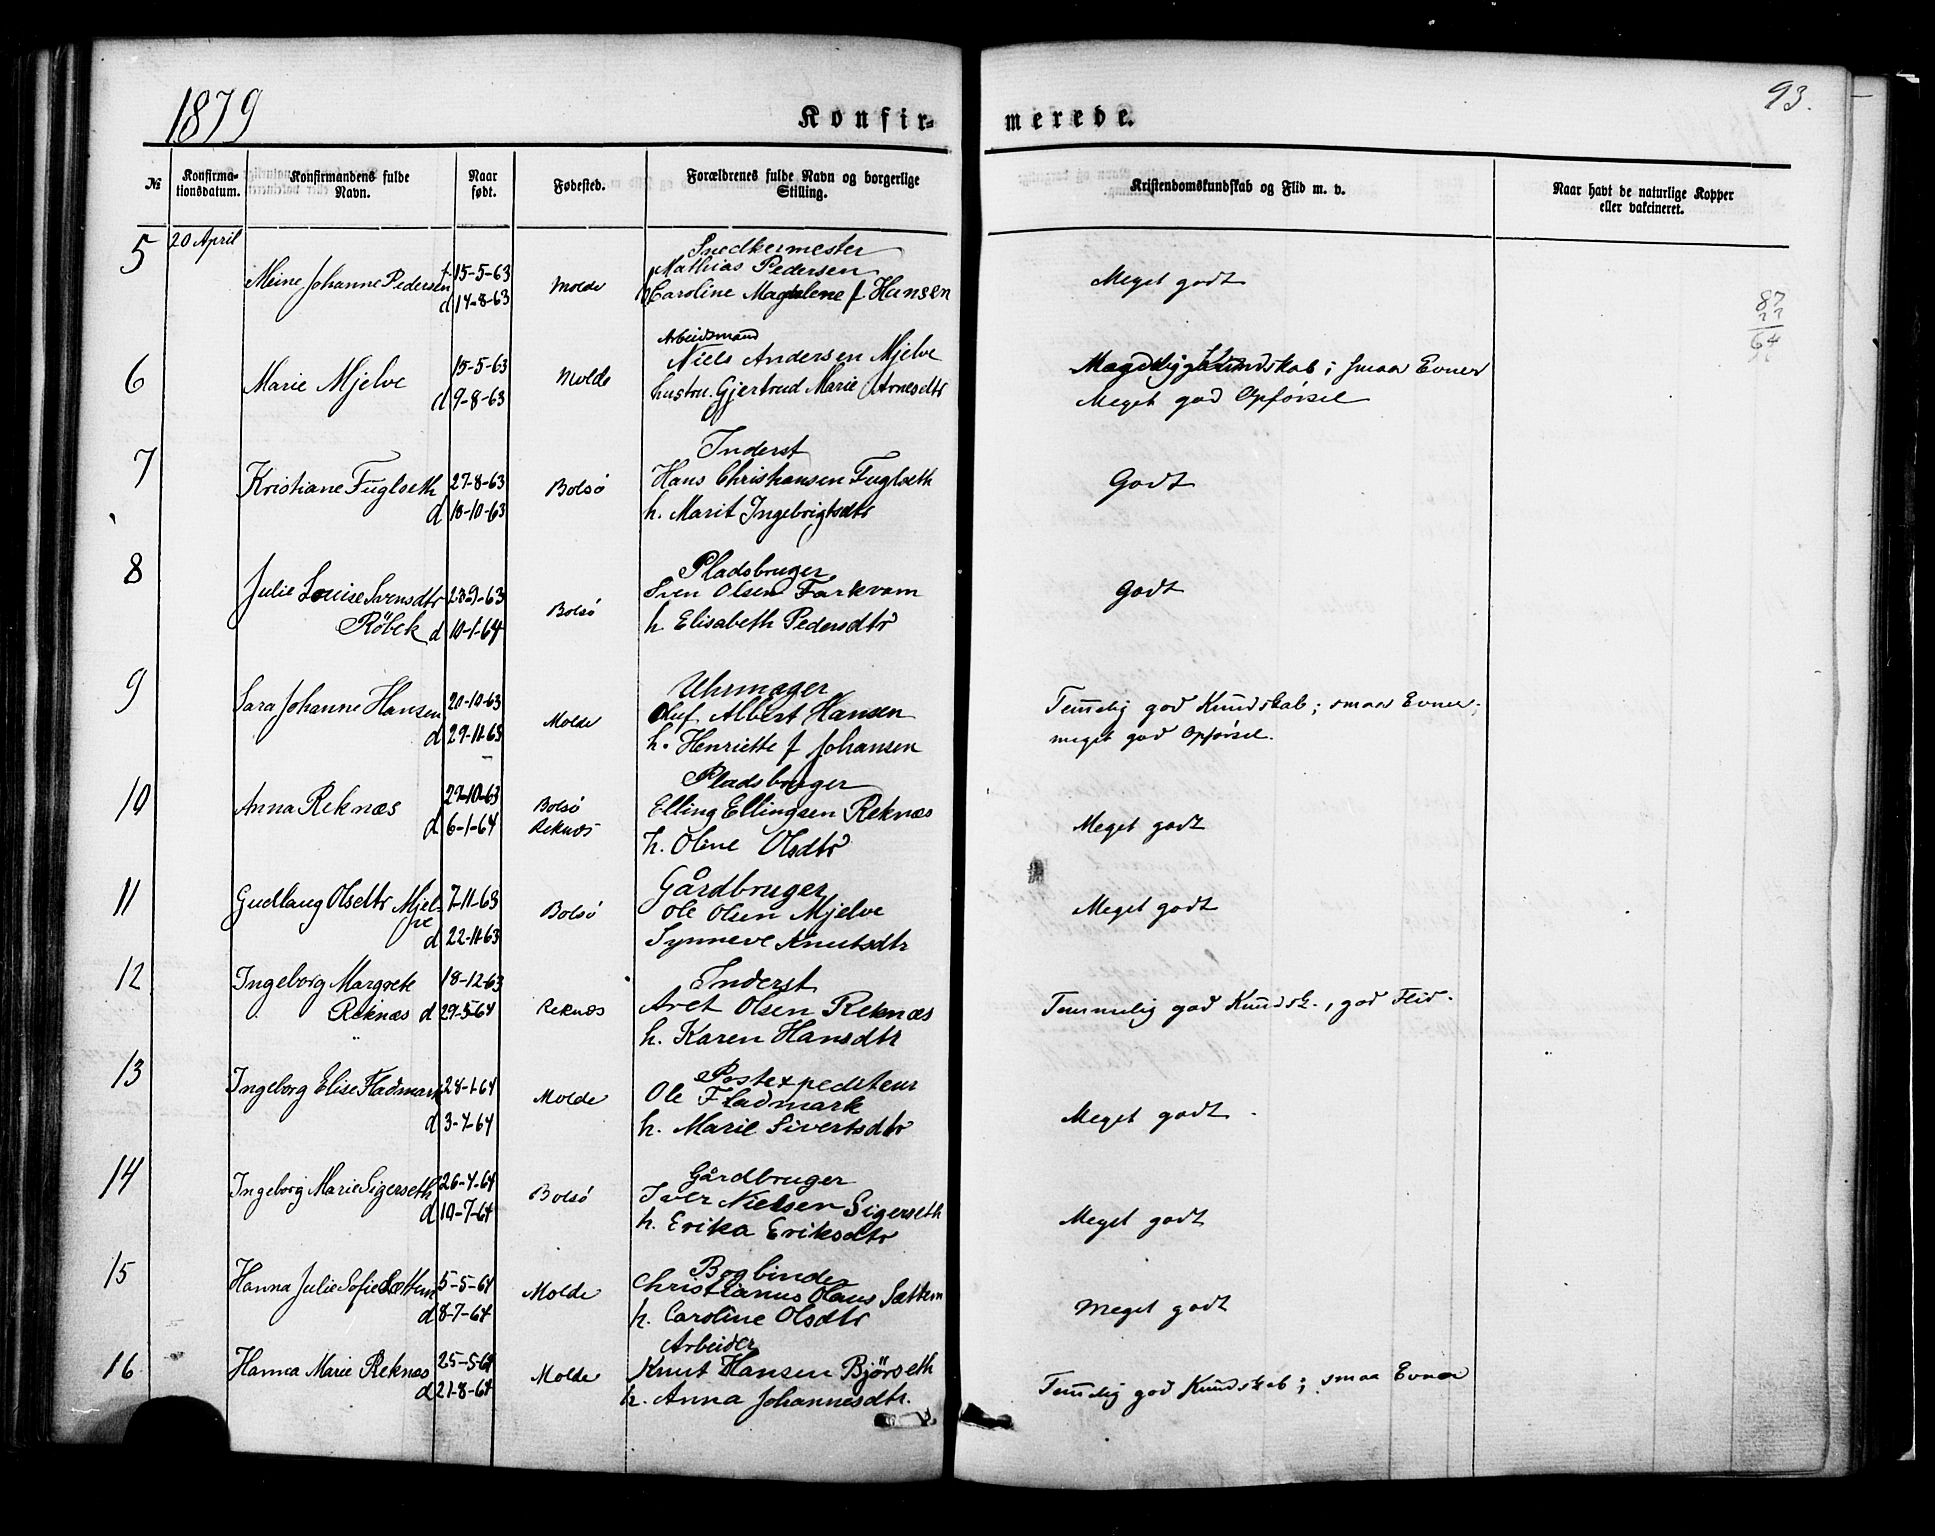 1879
Konfir-
merede.
93.
№
Konfirma-
tionsdatum.
Konfirmandens fulde
Navn.
Naar
født.
Fødested.
Forældrenes fulde Navn og borgerlige
Stilling.
Kristendomskundskab og Flid m. v.
Naar havt de naturlige Kopper
eller vakcineret.
5 20 April
Snedkermester
Meine Johanne Pedersen f 15-5-63 Molde Mathias Pedersen Meget godt
d 14-8-63 Caroline Magdalene f Hansen
87
64
6
Arbeidsmand
Marie Mjelve 15-5-63 Molde Niels Andersen Mjelve Kundskab; smaa Evner
d 9-8-63 hustru. Gjertrud Marie Arnesdtr Meget god Opførsel
7
Inderst
Kristiane Fuglseth 27-8-63 Bolsø Hans Christiansen Fuglseth Godt
d 18-10-63 h. Marit Ingebrigtsdtr
8
Pladsbruger
Julie Louise Svensdtr -9-63 Bolsø Sven Olsen Farkvam Godt
Røbek d 10-1-64 h Elisabeth Pedersdtr
9
Uhrmager
Sara Johanne Hansen 20-10-63 Molde Oluf Albert Hansen Temmelig god Kundskab; smaa Evner;
d 29-11-63 h. Henriette f Johansen meget god Opførsel.
10
Pladsbruger
Anna Reknæs 27-10-63 Bolsø Elling Ellingsen Reknæs Meget godt
d 6-1-64 Reknæs h. Oline Olsdtr
11
Gårdbruger
Gudlaug Olsdtr Mjel- 7-11-63 Bolsø Ole Olsen Mjelve Meget godt
ve d 22-11-63 Synneve Knutsdtr
12
Inderst
Ingeborg Margrete 18-12-63 Reknæs Aret Olsen Reknæs Temmelig god Kundsk., god Flid.
Reknæs d 29-5-64 h. Karen Hansdtr
13
Postexpediteur
Ingeborg Elise Fladmark 28-1-64 Molde Ole Fladmark Meget godt.
d 3-4-64 h. Marie Sivertsdtr
14
Gårdbruger
Ingeborg Marie Sigerseth 26-4-64 Bolsø Iver Nielsen Sigerseth Meget godt
d 10-7-64 h. Erika Eriksdtr
15
Bogbinder
Hanna Julie Sofie Sættem 5-5-64 Molde Christianus Olaus Sættem Meget godt
d 8-7-64 h. Caroline Olsdtr
16
Arbeider
Hanna Marie Reknæs 25-5-64 Molde Knut Hansen Bjørseth Temmelig god Kundskab; smaa Evner
d 21-8-64 h. Anna Johannesdtr.